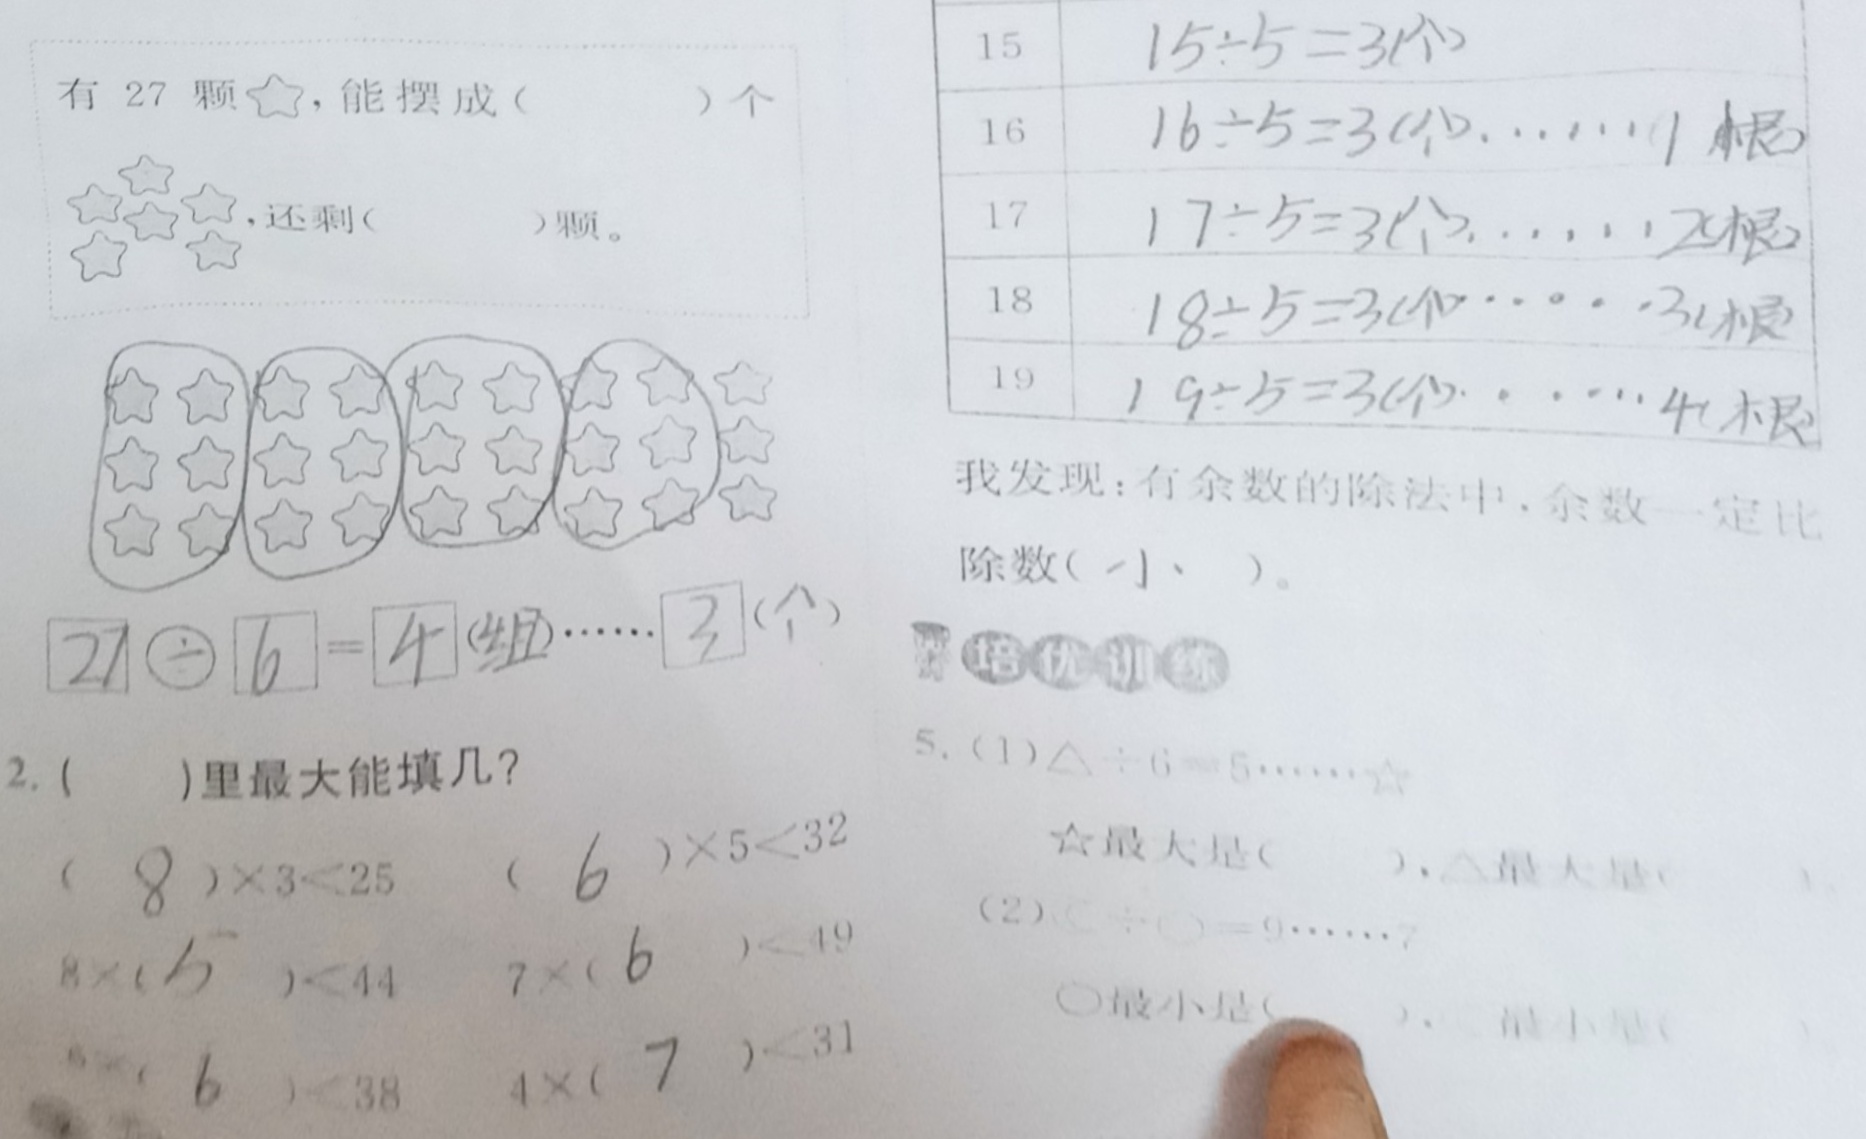 有 27 颗☆,能摆成( )个
,还剩( )颗。
27÷6=4(组)……3(个)
2. ( )里最大能填几?
( 8 )×3<25 ( 6 )×5<32
8×( 5 )<44 7×( 6 )<49
6×( 6 )<38 4×( 7 )<31
15 15÷5=3(个)
16 16÷5=3(个)……1(根)
17 17÷5=3(个)……2(根)
18 18÷5=3(个)……3(根)
19 19÷5=3(个)……4(根)
我发现:有余数的除法中,余数一定比
除数( 小、 )。
培优训练
5. (1)△÷6=5……☆
☆最大是( ),△最大是( )。
(2) ÷○=9……7
○最小是( ), 最小是( )